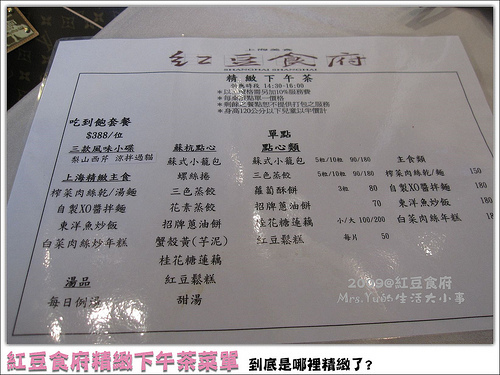 上海美食
紅豆食府
SHANGHAI SHANGHAI
精緻下午茶
供應時段 14:30-16:00
*以上價格需另加10%服務費
*每桌方點單一價格
*剩餘之餐點恕不提供打包之服務
*身高120公分以下兒童以半價計
吃到飽套餐
$388/位
三款風味小碟
梨山西芹 涼拌過貓
上海精緻主食
榨菜肉絲乾/湯麵
自製XO醬拌麵
東洋魚炒飯
白菜肉絲炒年糕
湯品
每日例湯
蘇杭點心
蘇式小籠包
螺絲捲
三色蒸餃
花素蒸餃
招牌蔥油餅
蟹殼黃(芋泥)
桂花糖蓮藕
紅豆鬆糕
甜湯
單點
點心類
蘇式小籠包 5粒/10粒 90/180
三色蒸餃 5粒/10粒 90/180
蘿蔔酥餅 3粒 80
招牌蔥油餅 70
桂花糖蓮藕 小/大 100/200
紅豆鬆糕 每片 50
主食類
榨菜肉絲乾/湯麵 150
自製XO醬拌麵 180
東洋魚炒飯 180
白菜肉絲年糕 18
2009@紅豆食府
Mrs.Yu的生活大小事
紅豆食府精緻下午茶菜單 到底是哪裡精緻了?